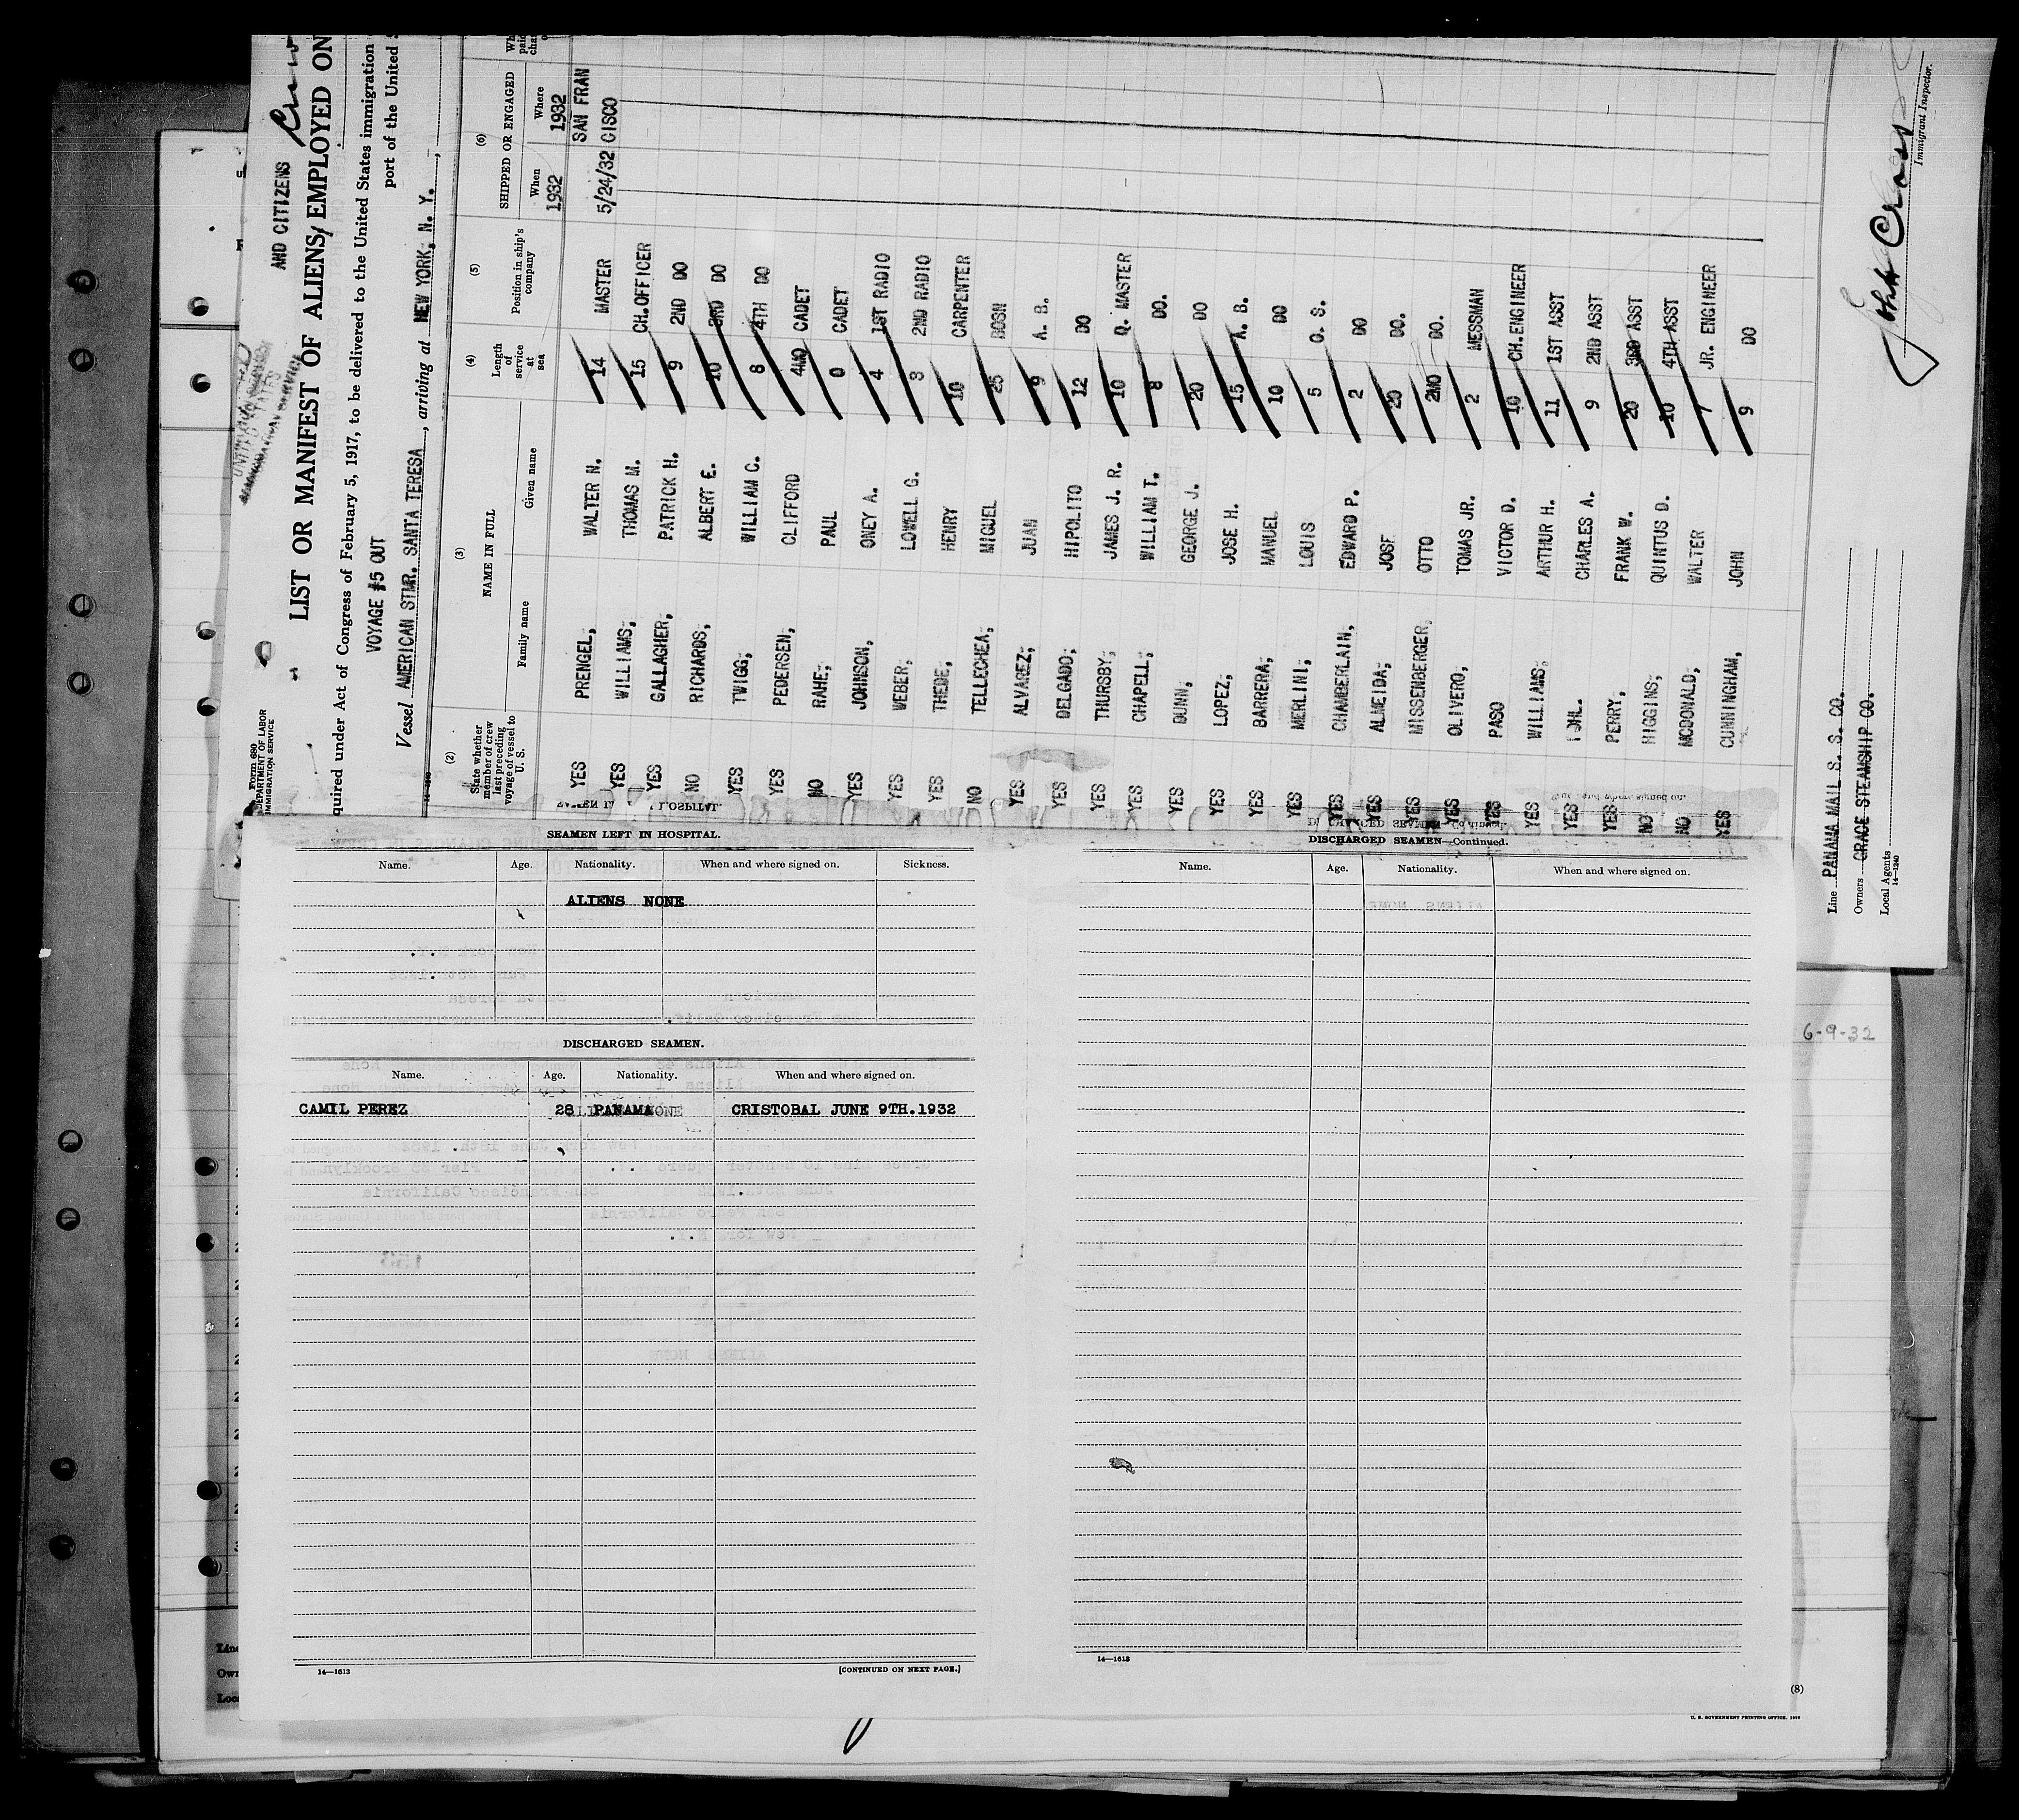 Form 680
DEPARTMENT OF LABOR
IMMIGRATION SERVICE
AND CITIZENS
Crew
LIST OR MANIFEST OF ALIENS/ EMPLOYED ON
quired under Act of Congress of February 5, 1917, to be delivered to the United States immigration
port of the United
VOYAGE #5 OUT
Vessel AMERICAN STMR. SANTA TERESA, arriving at NEW YORK, N. Y.,
(2) (3) (4) (5) (6)
State whether member of crew last preceding voyage of vessel to U. S.
NAME IN FULL
Family name Given name
Length of service at sea
Position in ship's company
SHIPPED OR ENGAGED
When Where
1932 1932
YES PRENGEL, WALTER N. 14 MASTER 5/24/32 SAN FRAN CISCO
YES WILLIAMS, THOMAS M. 15 CH.OFFICER
YES GALLAGHER, PATRICK H. 9 2ND DO
NO RICHARDS, ALBERT E. 10 3RD DO
YES TWIGG, WILLIAM C. 8 4TH DO
YES PEDERSEN, CLIFFORD 4MO CADET
NO RAHE, PAUL 0 CADET
YES JOHNSON, ONEY A. 4 1ST RADIO
YES WEBER, LOWELL G. 3 2ND RADIO
YES THEDE, HENRY 10 CARPENTER
NO TELLECHEA, MIGUEL 25 BOSN
YES ALVAREZ, JUAN 9 A. B.
YES DELGADO, HIPOLITO 12 DO
YES THURSBY, JAMES J. R. 10 Q. MASTER
YES CHAPELL, WILLIAM T. 8 DO.
YES DUNN, GEORGE J. 20 DO
YES LOPEZ, JOSE H. 15 A. B.
YES BARRERA, MANUEL 10 DO
YES MERLINI, LOUIS 5 O. S.
YES CHAMBERLAIN, EDWARD P. 2 DO
YES ALMEIDA, JOSE 20 DO.
YES MISSENBERGER, OTTO 2MO DO.
YES OLIVERO, TOMAS JR. 2 MESSMAN
YES PASO VICTOR D. 10 CH.ENGINEER
YES WILLIAMS, ARTHUR H. 11 1ST ASST
YES CHARLES A. 9 2ND ASST
YES PERRY, FRANK W. 20 3RD ASST
NO HIGGINS, QUINTUS D. 10 4TH ASST
NO MCDONALD, WALTER 7 JR. ENGINEER
YES CUNNINGHAM, JOHN 9 DO
Line PANAMA MAIL S. S. CO.
Owners GRACE STEAMSHIP CO.
Local Agents
14-1240
John Cross
Immigrant Inspector.
SEAMEN LEFT IN HOSPITAL.
Name. Age. Nationality. When and where signed on. Sickness.
ALIENS NONE
DISCHARGED SEAMEN.
Name. Age. Nationality. When and where signed on.
CAMIL PEREZ 28 PANAMA CRISTOBAL JUNE 9TH.1932
14—1613
[CONTINUED ON NEXT PAGE.]
DISCHARGED SEAMEN—Continued.
Name. Age. Nationality. When and where signed on.
14—1613
(8)
U. S. GOVERNMENT PRINTING OFFICE
6-9-32
Line
Own
Loca